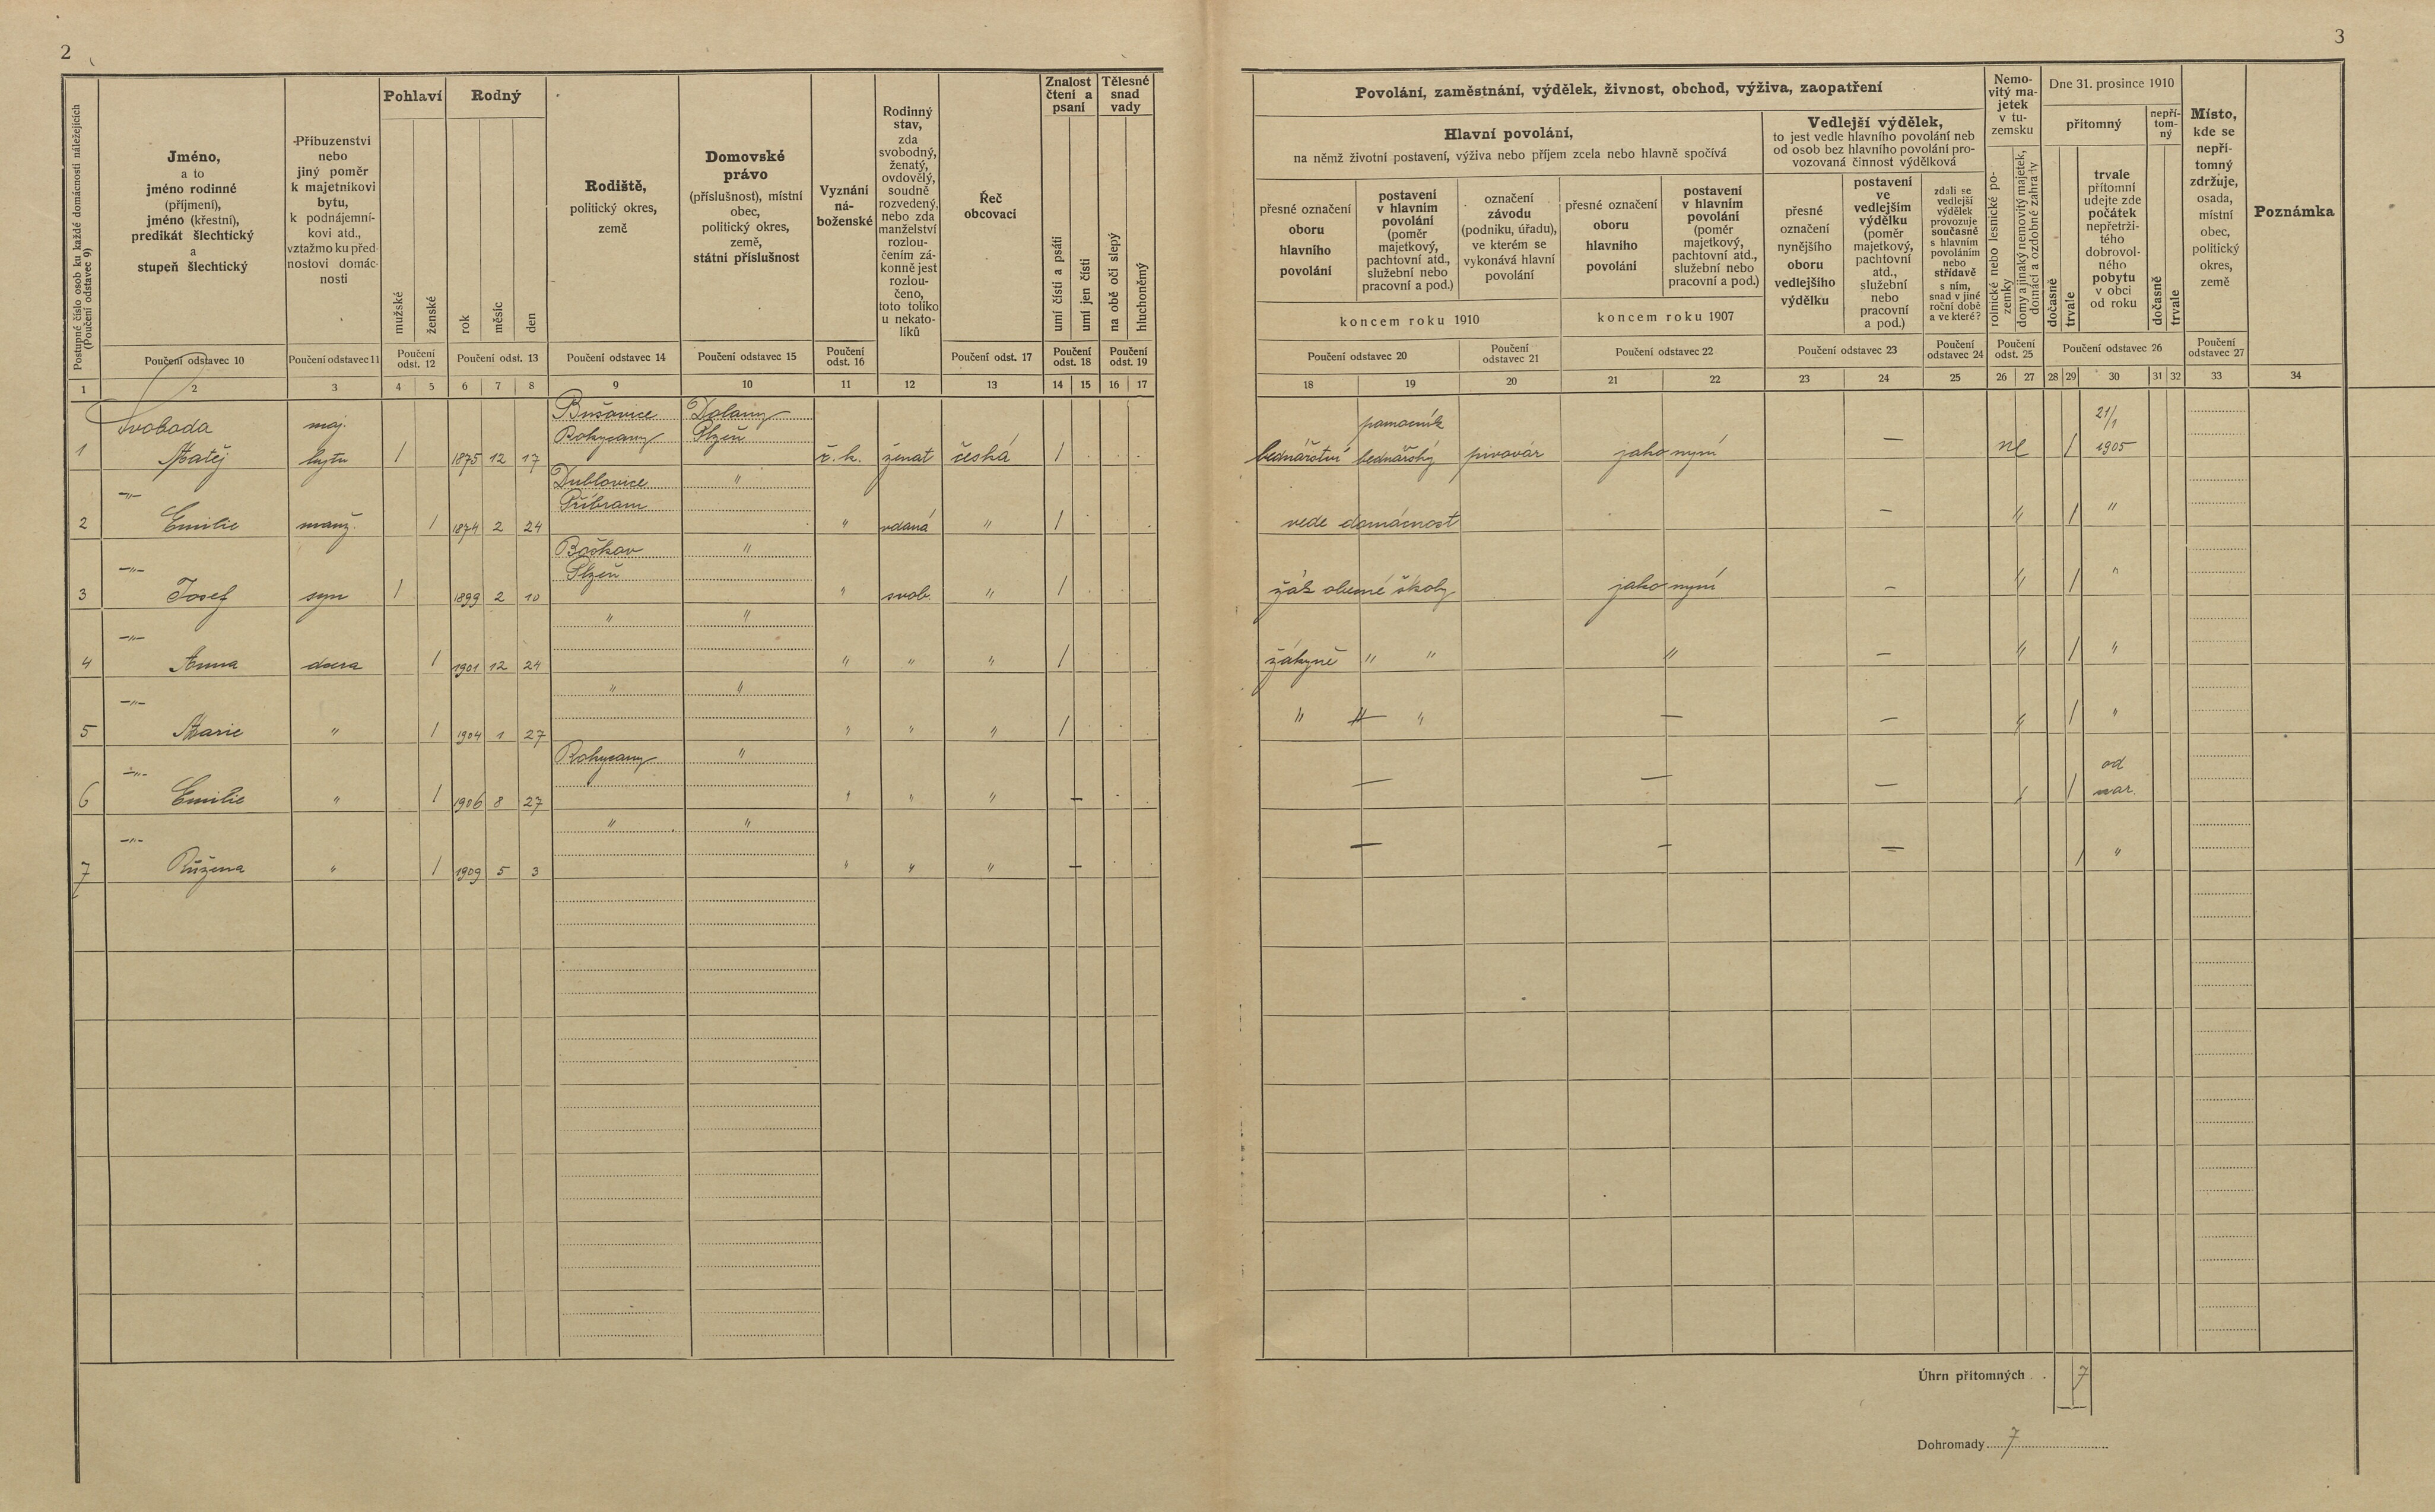 2
3
Postupné číslo osob ku každé domácnosti náležejících
(Poučení odstavec 9)
Jméno,
a to
jméno rodinné
(příjmení),
jméno (křestní),
predikát šlechtický
a
stupeň šlechtický
Příbuzenství
nebo
jiný poměr
k majetníkovi
bytu,
k podnájemní-
kovi atd.,
vztažmo ku před-
nostovi domác-
nosti
Pohlaví
mužské
ženské
Rodný
rok
měsíc
den
Rodiště,
politický okres,
země
Domovské
právo
(příslušnost), místní
obec,
politický okres,
země,
státní příslušnost
Vyznání
ná-
boženské
Rodinný
stav,
zda
svobodný,
ženatý,
ovdovělý,
soudně
rozvedený,
nebo zda
manželství
rozlou-
čením zá-
konně jest
rozlou-
čeno,
toto toliko
u nekato-
líků
Řeč
obcovací
Znalost
čtení a
psaní
umí čísti a psáti
umí jen čísti
Tělesné
snad
vady
na obě oči slepý
hluchoněmý
Poučení odstavec 10
Poučení odstavec 11
Poučení
odst. 12
Poučení odst. 13
Poučení odstavec 14
Poučení odstavec 15
Poučení
odst. 16
Poučení odst. 17
Poučení
odst. 18
Poučení
odst. 19
1 2 3 4 5 6 7 8 9 10 11 12 13 14 15 16 17
Povolání, zaměstnání, výdělek, živnost, obchod, výživa, zaopatření
Hlavní povolání,
na němž životní postavení, výživa nebo příjem zcela nebo hlavně spočívá
přesné označení
oboru
hlavního
povolání
postavení
v hlavním
povolání
(poměr
majetkový,
pachtovní atd.,
služební nebo
pracovní a pod.)
označení
závodu
(podniku, úřadu),
ve kterém se
vykonává hlavní
povolání
koncem roku 1910
přesné označení
oboru
hlavního
povolání
postavení
v hlavním
povolání
(poměr
majetkový,
pachtovní atd.,
služební nebo
pracovní a pod.)
koncem roku 1907
Vedlejší výdělek,
to jest vedle hlavního povolání neb
od osob bez hlavního povolání pro-
vozovaná činnost výdělková
přesné
označení
nynějšího
oboru
vedlejšího
výdělku
postavení
ve
vedlejším
výdělku
(poměr
majetkový,
pachtovní
atd.,
služební
nebo
pracovní
a pod.)
zdali se
vedlejší
výdělek
provozuje
současně
s hlavním
povoláním
nebo
střídavě
s ním,
snad v jiné
roční době
a ve které?
Nemo-
vitý ma-
jetek
v tu-
zemsku
rolnické nebo lesnické po-
zemky
domy a jinaký nemovitý majetek,
domácí a ozdobné zahrady
Dne 31. prosince 1910
přítomný
dočasně
trvale
trvale
přítomní
udejte zde
počátek
nepřetrži-
tého
dobrovol-
ného
pobytu
v obci
od roku
nepří-
tom-
ný
dočasně
trvale
Místo,
kde se
nepří-
tomný
zdržuje,
osada,
místní
obec,
politický
okres,
země
Poznámka
Poučení odstavec 20
Poučení
odstavec 21
Poučení odstavec 22
Poučení odstavec 23
Poučení
odstavec 24
Poučení
odst. 25
Poučení odstavec 26
Poučení
odstavec 27
18 19 20 21 22 23 24 25 26 27 28 29 30 31 32 33 34
Bušovice Dolany
Svoboda maj. Rokycany Plzeň pomocník 21/1
1 Matěj bytu / 1875 12 17 ř. k. ženat česká / bednářství bednářský pivovár jako nyní — ne / 1905
Dublovice "
—"— Příbram
2 Emilie manž. / 1874 2 24 " vdaná " / vede domácnost — " / "
Božkov "
—"— Plzeň
3 Josef syn / 1899 2 10 " svob. " / žák obecné školy jako nyní — " / "
" "
—"—
4 Anna dcera / 1901 12 24 " " " / žákyně " " " — " / "
" "
—"—
5 Marie " / 1904 1 27 " " " / " " " — — " / "
Rokycany "
—"— od
6 Emilie " / 1906 8 27 " " " — — — — " / nar.
" "
—"—
7 Růžena " / 1909 5 3 " " " — — — — / "
Úhrn přítomných . . 7
Dohromady 7